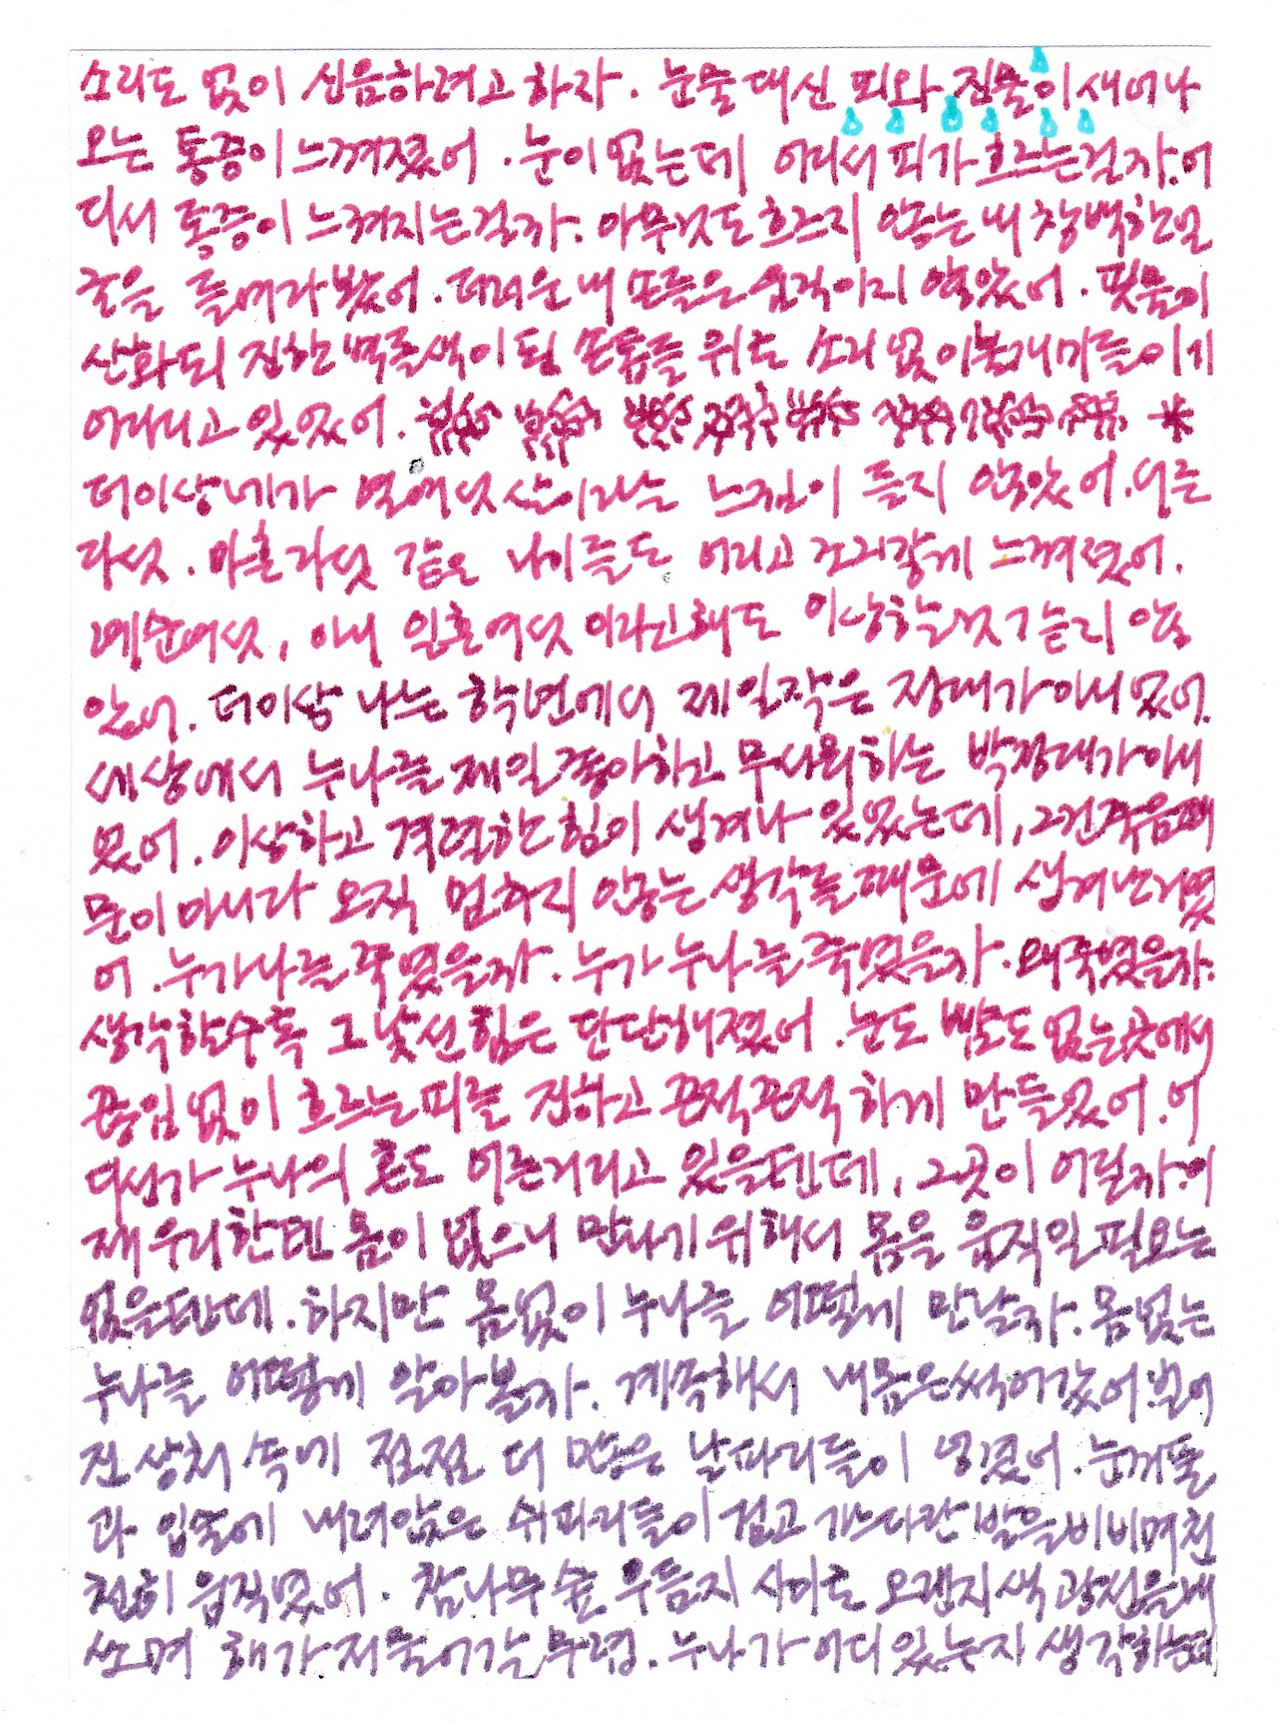 소리도 없이 신음하려고 하자. 눈물 대신 피와 진물이 새어나
오는 통증이 느껴졌어. 눈이 없는데 어디서 피가 흐르는걸까. 어
디서 통증이 느껴지는걸까. 아무것도 흐르지 않는 내 창백한 얼
굴을 들여다봤어. 더러운 내 손들은 움직이지 않았어. 핏물이
산화되 진한 벽돌색이 된 손톱들 위로 소리 없이 불개미들이 기
어다니고 있었어.
더이상 내가 열여섯 살이라는 느낌이 들지 않았어. 서른
다섯. 마흔다섯 같은 나이들도 어리고 가냘프게 느껴졌어.
예순여섯, 아니 일흔여섯 이라고 해도 이상할 것 같지 않
았어. 더이상 나는 학년에서 제일 작은 정대가 아니었어.
세상에서 누나를 제일 좋아하고 무서워하는 박정대가 아니
었어. 이상하고 격렬한 힘이 생겨나 있었는데, 그건 죽음 때
문이 아니라 오직 멈추지 않는 생각들 때문에 생겨난거였
어. 누가 나를 죽였을까. 누가 누나를 죽였을까. 왜 죽였을까.
생각할수록 그 낯선 힘은 단단해졌어. 눈도 뺨도 없는 곳에서
끊임없이 흐르는 피를 진하고 끈적끈적하게 만들었어. 어
디선가 누나의 혼도 어른거리고 있을텐데, 그곳이 어딜까. 이
제 우리한텐 몸이 없으니 만나기 위해서 몸을 움직일 필요는
없을텐데. 하지만 몸없이 누나를 어떻게 만날까. 몸 없는
누나를 어떻게 알아볼까. 계속해서 내 몸은 썩어갔어. 벌어
진 상처 속에 점점 더 많은 날파리들이 엉겼어. 눈꺼풀
과 입술에 내려앉은 쉬파리들이 검고 가느다란 발을 비비며 천
천히 움직였어. 참나무 숲 우듬지 사이로 오렌지색 광선을 내
쏘며 해가 저물어갈 무렵. 누나가 어디 있는지 생각하는데